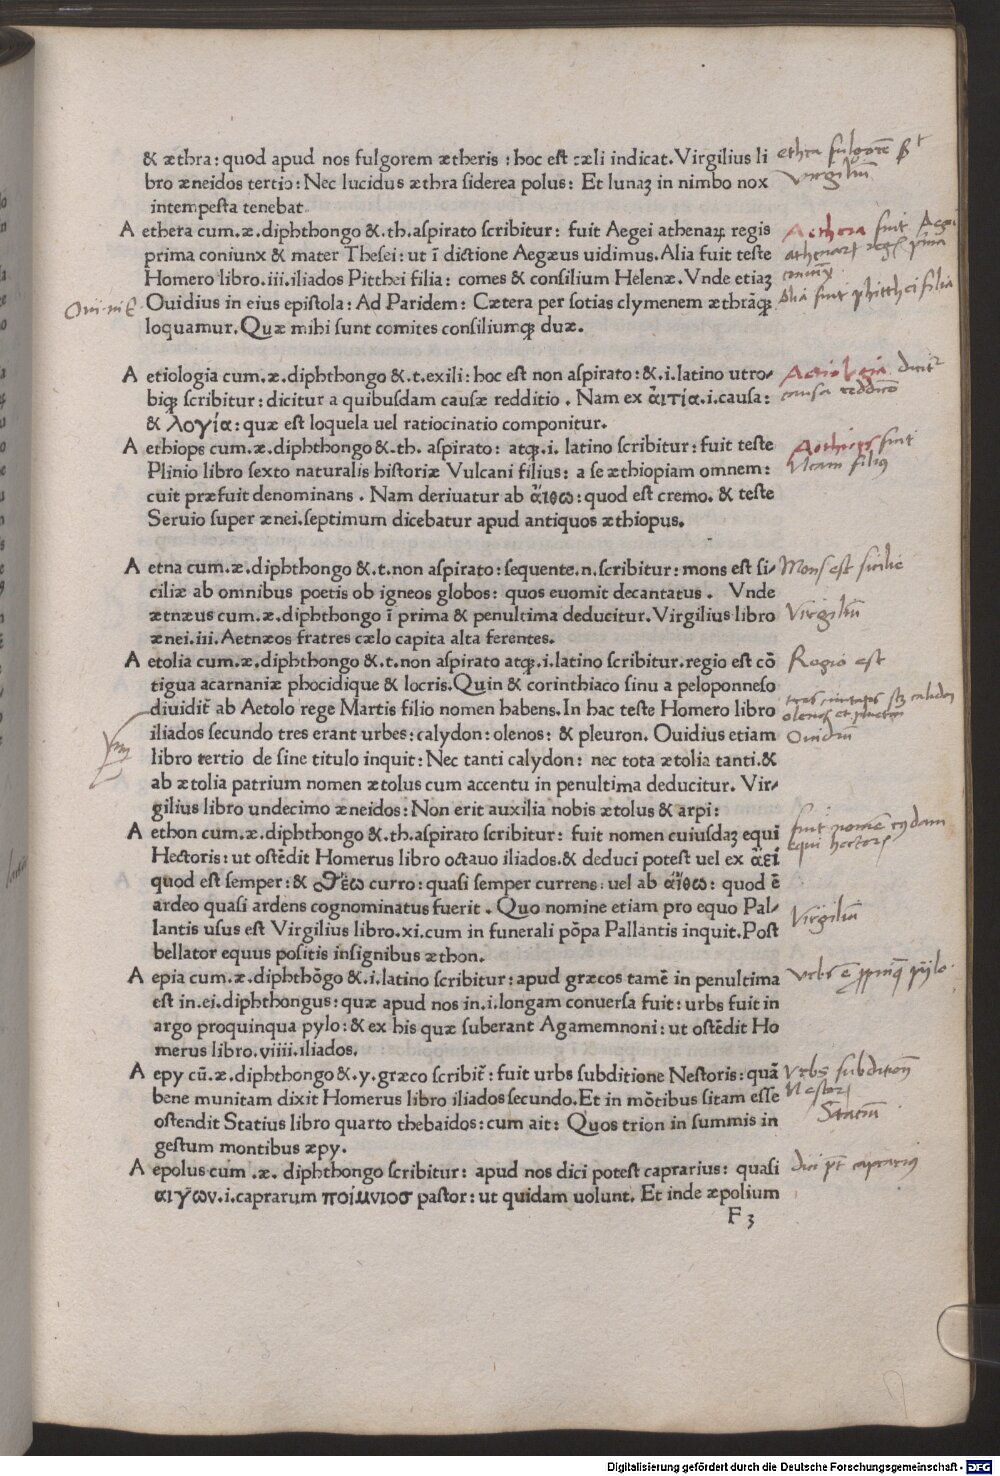 & æthra: quod apud nos fulgorem ætheris: hoc est cæli indicat. Virgilius li
bro æneidos tertio: Nec lucidus æthra siderea polus: Et lunaꝫ in nimbo nox
intempesta tenebat
A ethera cum.æ.diphthongo &.th.aspirato scribitur: fuit Aegei athenaꝝ regis
prima coniunx & mater Thesei: ut ī dictione Aegæus uidimus. Alia fuit teste
Homero libro.iii.iliados Pitthei filia: comes & consilium Helenæ. Vnde etiaꝫ
Ouidius in eius epistola: Ad Paridem: Cætera per sotias clymenem æthrāqꝫ
loquamur. Quæ mihi sunt comites consiliumqꝫ duæ.
A etiologia cum.æ.diphthongo &.t.exili: hoc est non aspirato: &.i.latino utro-
biqꝫ scribitur: dicitur a quibusdam causæ redditio . Nam ex ἀιτία.i.causa:
& λογία: quæ est loquela uel ratiocinatio componitur.
A ethiops cum.æ.diphthongo &.th. aspirato: atqꝫ.i. latino scribitur: fuit teste
Plinio libro sexto naturalis historiæ Vulcani filius: a se æthiopiam omnem:
cuit præfuit denominans . Nam deriuatur ab ἄιθω: quod est cremo. & teste
Seruio super ænei.septimum dicebatur apud antiquos æthiopus.
A etna cum.æ.diphthongo &.t.non aspirato: sequente.n.scribitur: mons est si-
ciliæ ab omnibus poetis ob igneos globos: quos euomit decantatus . Vnde
ætnæus cum.æ.diphthongo ī prima & penultima deducitur. Virgilius libro
ænei.iii. Aetnæos fratres cælo capita alta ferentes.
A etolia cum.æ.diphthongo &.t.non aspirato atqꝫ.i.latino scribitur.regio est cō
tigua acarnaniæ phocidique & locris. Quin & corinthiaco sinu a peloponneso
diuidit̄ ab Aetolo rege Martis filio nomen habens. In hac teste Homero libro
iliados secundo tres erant urbes: calydon: olenos: & pleuron. Ouidius etiam
libro tertio de sine titulo inquit: Nec tanti calydon: nec tota ætolia tanti.&
ab ætolia patrium nomen ætolus cum accentu in penultima deducitur. Vir-
gilius libro undecimo æneidos: Non erit auxilia nobis ætolus & arpi:
A ethon cum.æ.diphthongo &.th.aspirato scribitur: fuit nomen cuiusdaꝫ equi
Hectoris: ut ostēdit Homerus libro octauo iliados.& deduci potest uel ex ἀεί
quod est semper: & θέω curro: quasi semper currens: uel ab ἄιθω: quod ē
ardeo quasi ardens cognominatus fuerit . Quo nomine etiam pro equo Pal-
lantis usus est Virgilius libro.xi.cum in funerali pōpa Pallantis inquit. Post
bellator equus positis insignibus æthon.
A epia cum.æ.diphthōgo &.i.latino scribitur: apud græcos tamē in penultima
est in.ei.diphthongus: quæ apud nos in.i.longam conuersa fuit: urbs fuit in
argo proquinqua pylo: & ex his quæ suberant Agamemnoni: ut ostēdit Ho
merus libro.viiii.iliados.
A epy cū.æ.diphthongo &.y.græco scribit̄: fuit urbs subditione Nestoris: quā
bene munitam dixit Homerus libro iliados secundo. Et in mōtibus sitam esse
ostendit Statius libro quarto thebaidos: cum ait: Quos trion in summis in
gestum montibus æpy.
A epolus cum .æ. diphthongo scribitur: apud nos dici potest caprarius: quasi
αιγῶν.i.caprarum ποίμνιοσ pastor: ut quidam uolunt. Et inde æpolium
F 3
Aethera fuit
prima
Alia fuit phitthei filia
Aetiologia
causa
Aethiops fuit
filius
Mons est sicilie
Virgiliū
Regio est
Ouidiū
fuit
equi hectoris
Virgiliū
Vrbs
Vrbs
Nestoris
Statiū
caprarius
Digitalisierung gefördert durch die Deutsche Forschungsgemeinschaft - DFG